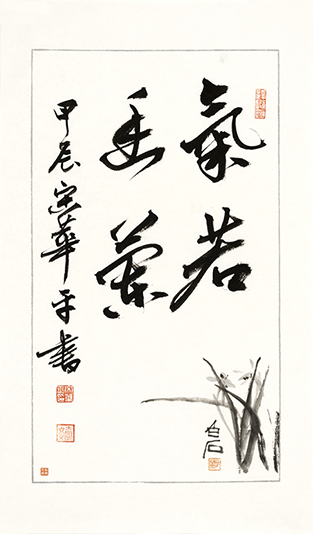 氣若
幽蘭
甲辰宗華平書
白石